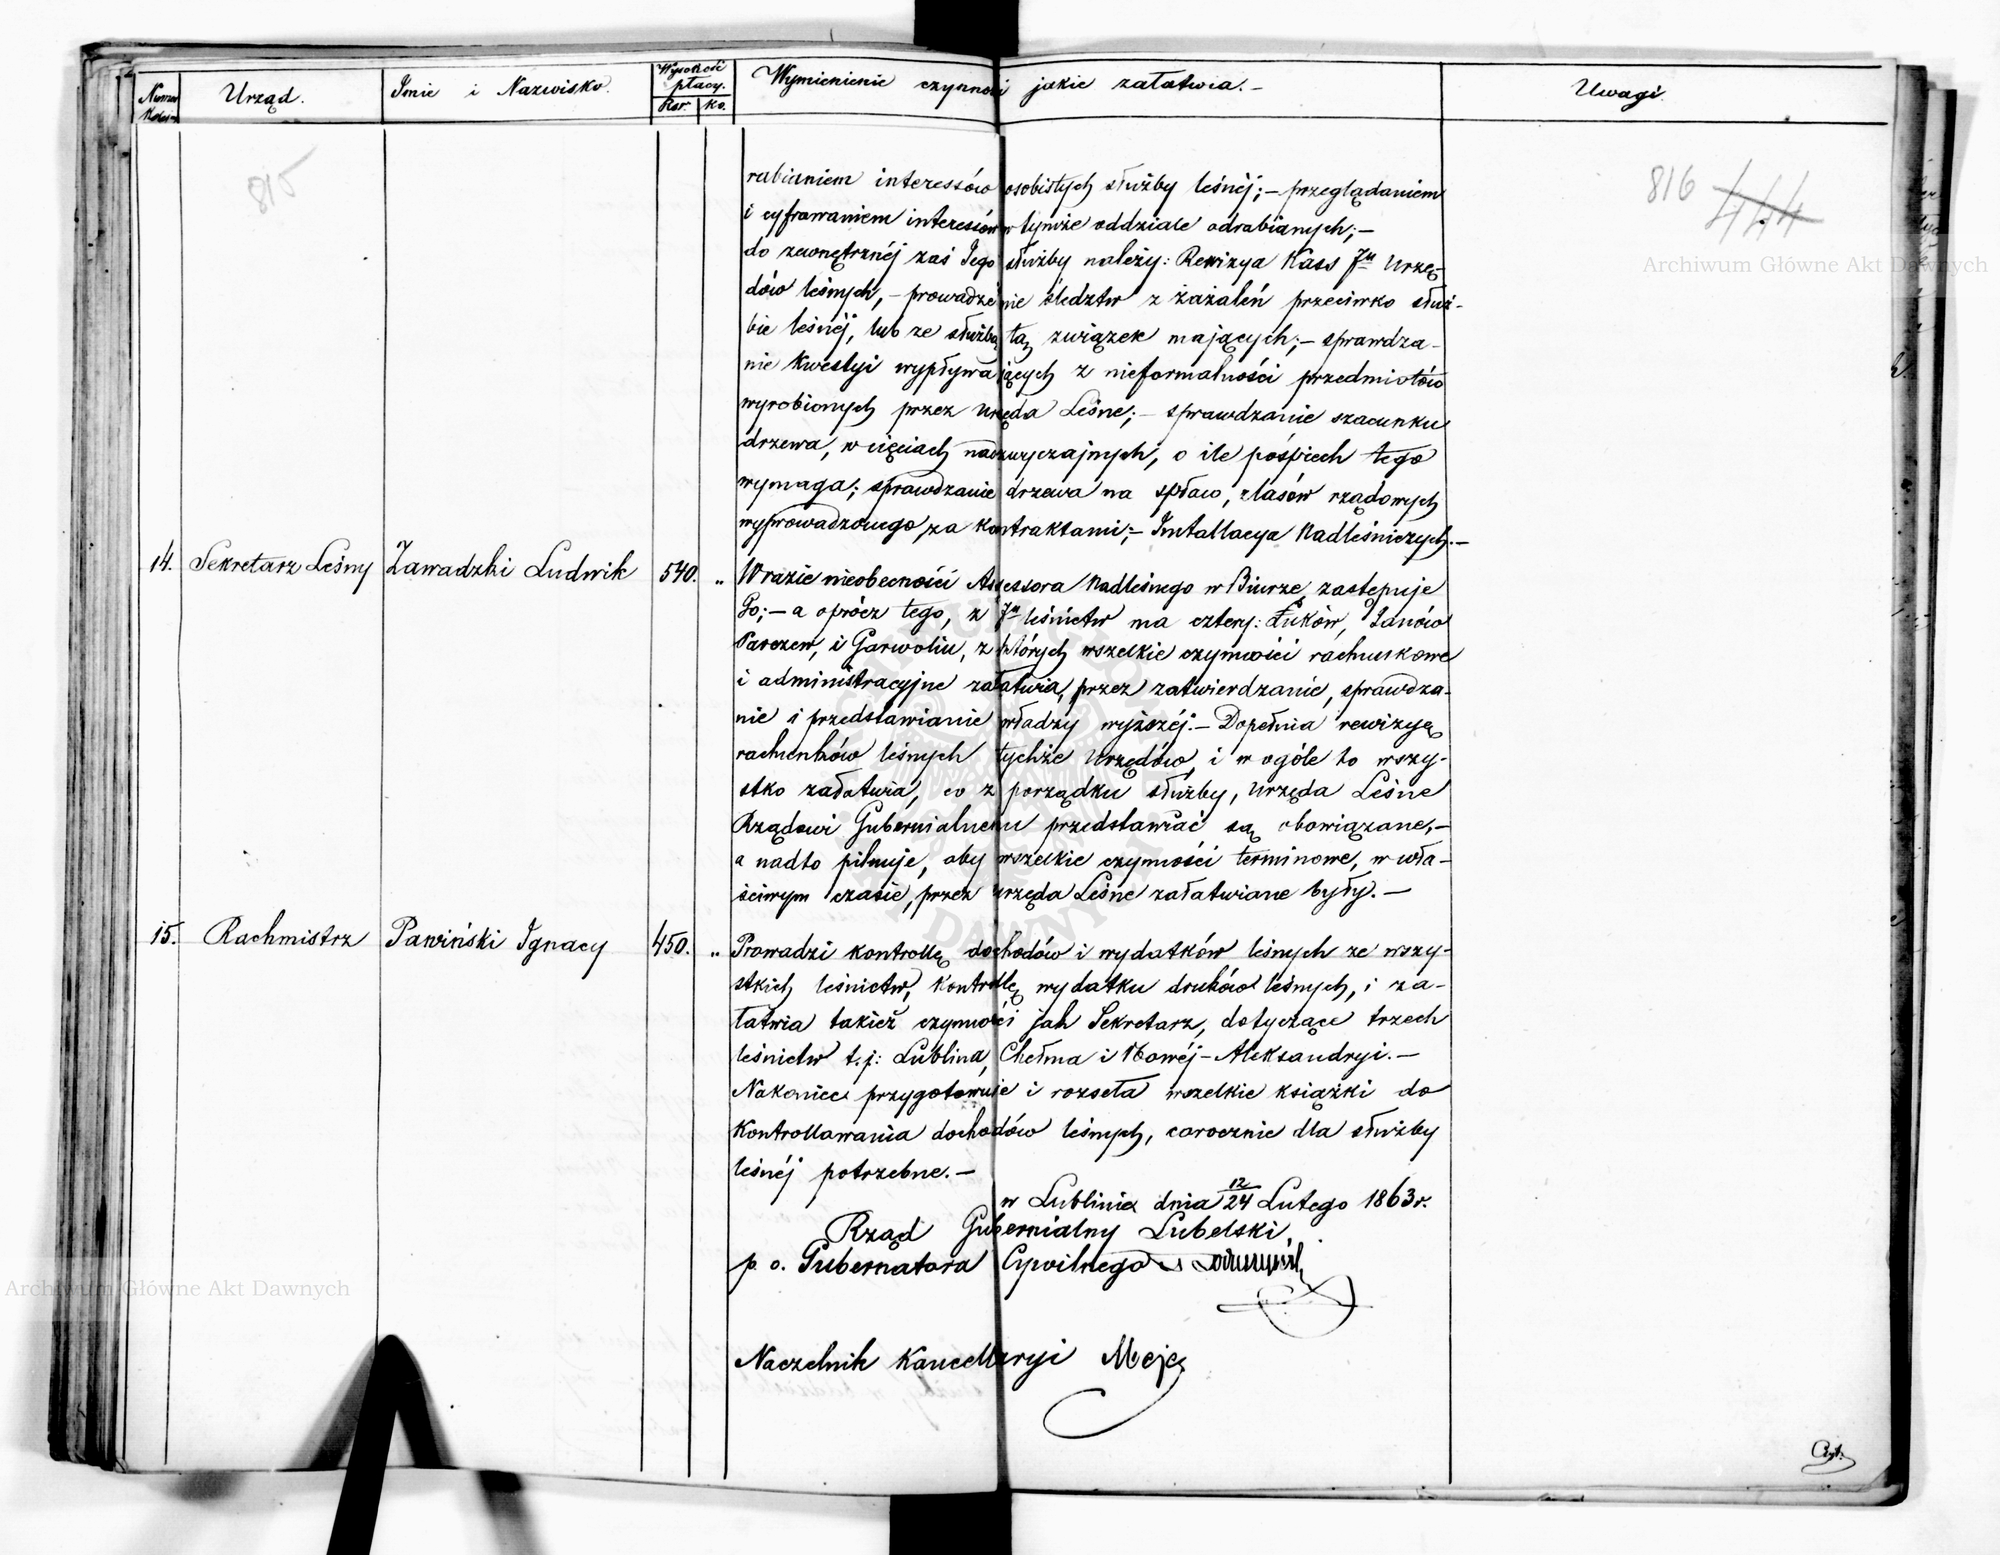 Numer Kolejn
Urząd.
Imie i Nazwisko.
Wysokość płacy.
Rsr. ko.
Wymienienie czynności jakie załatwia.—
Uwagi.
815
816 444
Archiwum Główne Akt Dawnych
rabianiem interessów osobistych służby leśnéj;— przeglądaniem
i cyfrowaniem interesiów w tymże oddziale odrabianych;—
do zewnętrznéj zaś Jego służby należy: Rewizya Kass 7u Urzę-
dów leśnych,— prowadzenie śledztw z zażaleń przeciwko służ-
bie leśnéj, lub ze służbą tą związek mających;— sprawdza-
nie kwestyi wypływających z nieformalności przedmiotów
wyrobionych przez Urzęda Leśne;— sprawdzanie szacunku
drzewa, w cięciach nadzwyczajnych, o ile pośpiech tego
wymaga; sprawdzanie drzewa na spław, z lasów rządowych
wyprowadzonego, za kontraktami;— Installacya Nadleśniczych.—
14. Sekretarz Leśny Zawadzki Ludwik 540. „ W razie nieobecności Assessora Nadleśnego w Biurze, zastępuje
Go;— a oprócz tego, z 7u leśnictw ma cztery: Łuków, Janów
Parczew, i Garwolin, z których wszelkie czynności rachunkowe
i administracyjne załatwia, przez zatwierdzanie, sprawdza-
nie i przedstawianie władzy wyższéj.— Dopełnia rewizyę
rachunków leśnych tychże Urzędów, i w ogóle to wszy-
stko załatwia, co z porządku służby, Urzęda Leśne
Rządowi Gubernialnemu przedstawiać są obowiązane,—
a nadto pilnuje, aby wszelkie czynności terminowe, w wła-
ściwym czasie, przez Urzęda Leśne załatwiane były.—
15. Rachmistrz Pawiński Ignacy 450. „ Prowadzi kontrollę dochodów i wydatków leśnych ze wszy-
stkich leśnictw, kontrollę wydatku druków leśnych, i za-
łatwia takież czynności jak Sekretarz, dotyczące trzech
leśnictw t.j: Lublina, Chełma i Nowéj-Aleksandryi.—
Nakoniec przygotowuje i rozseła wszelkie książki do
kontrollowania dochodów leśnych, corocznie dla służby
leśnéj potrzebne.—
w Lublinie dnia 12/24 Lutego 1863 r.
Rząd Gubernialny Lubelski,
p. o. Gubernatora Cywilnego
Archiwum Główne Akt Dawnych
Naczelnik Kancellaryi